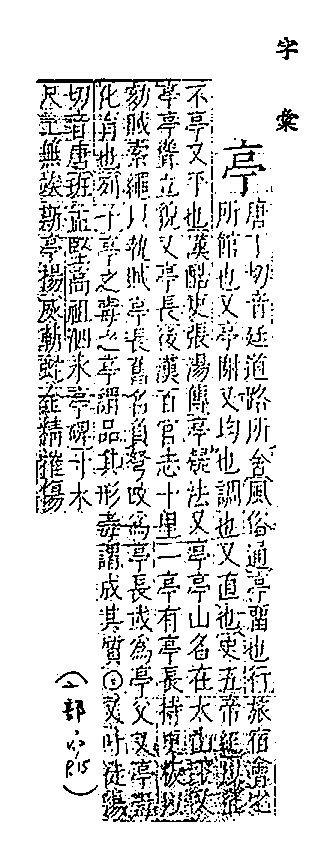 字彙
亭
唐丁切音廷道路所舍風俗通亭留也行旅宿會之
所館也又亭閣又均也調也又直也史五帝紀
不亭又平也漢酷吏張湯傳亭疑法又亭亭山名在太山
亭亭聳立貌又亭長後漢百官志十里一亭有亭長持更板以
劾賊索繩以執賊亭長舊名負弩改為亭長或為亭父又亭
化育也列子亭之毒之亭謂品其形毒謂成其質又叶徒陽
切音唐班孟堅高祖泗水亭碑寸木
尺土無竢斯亭揚威斬蛇金精摧傷
(亠部
P.15)